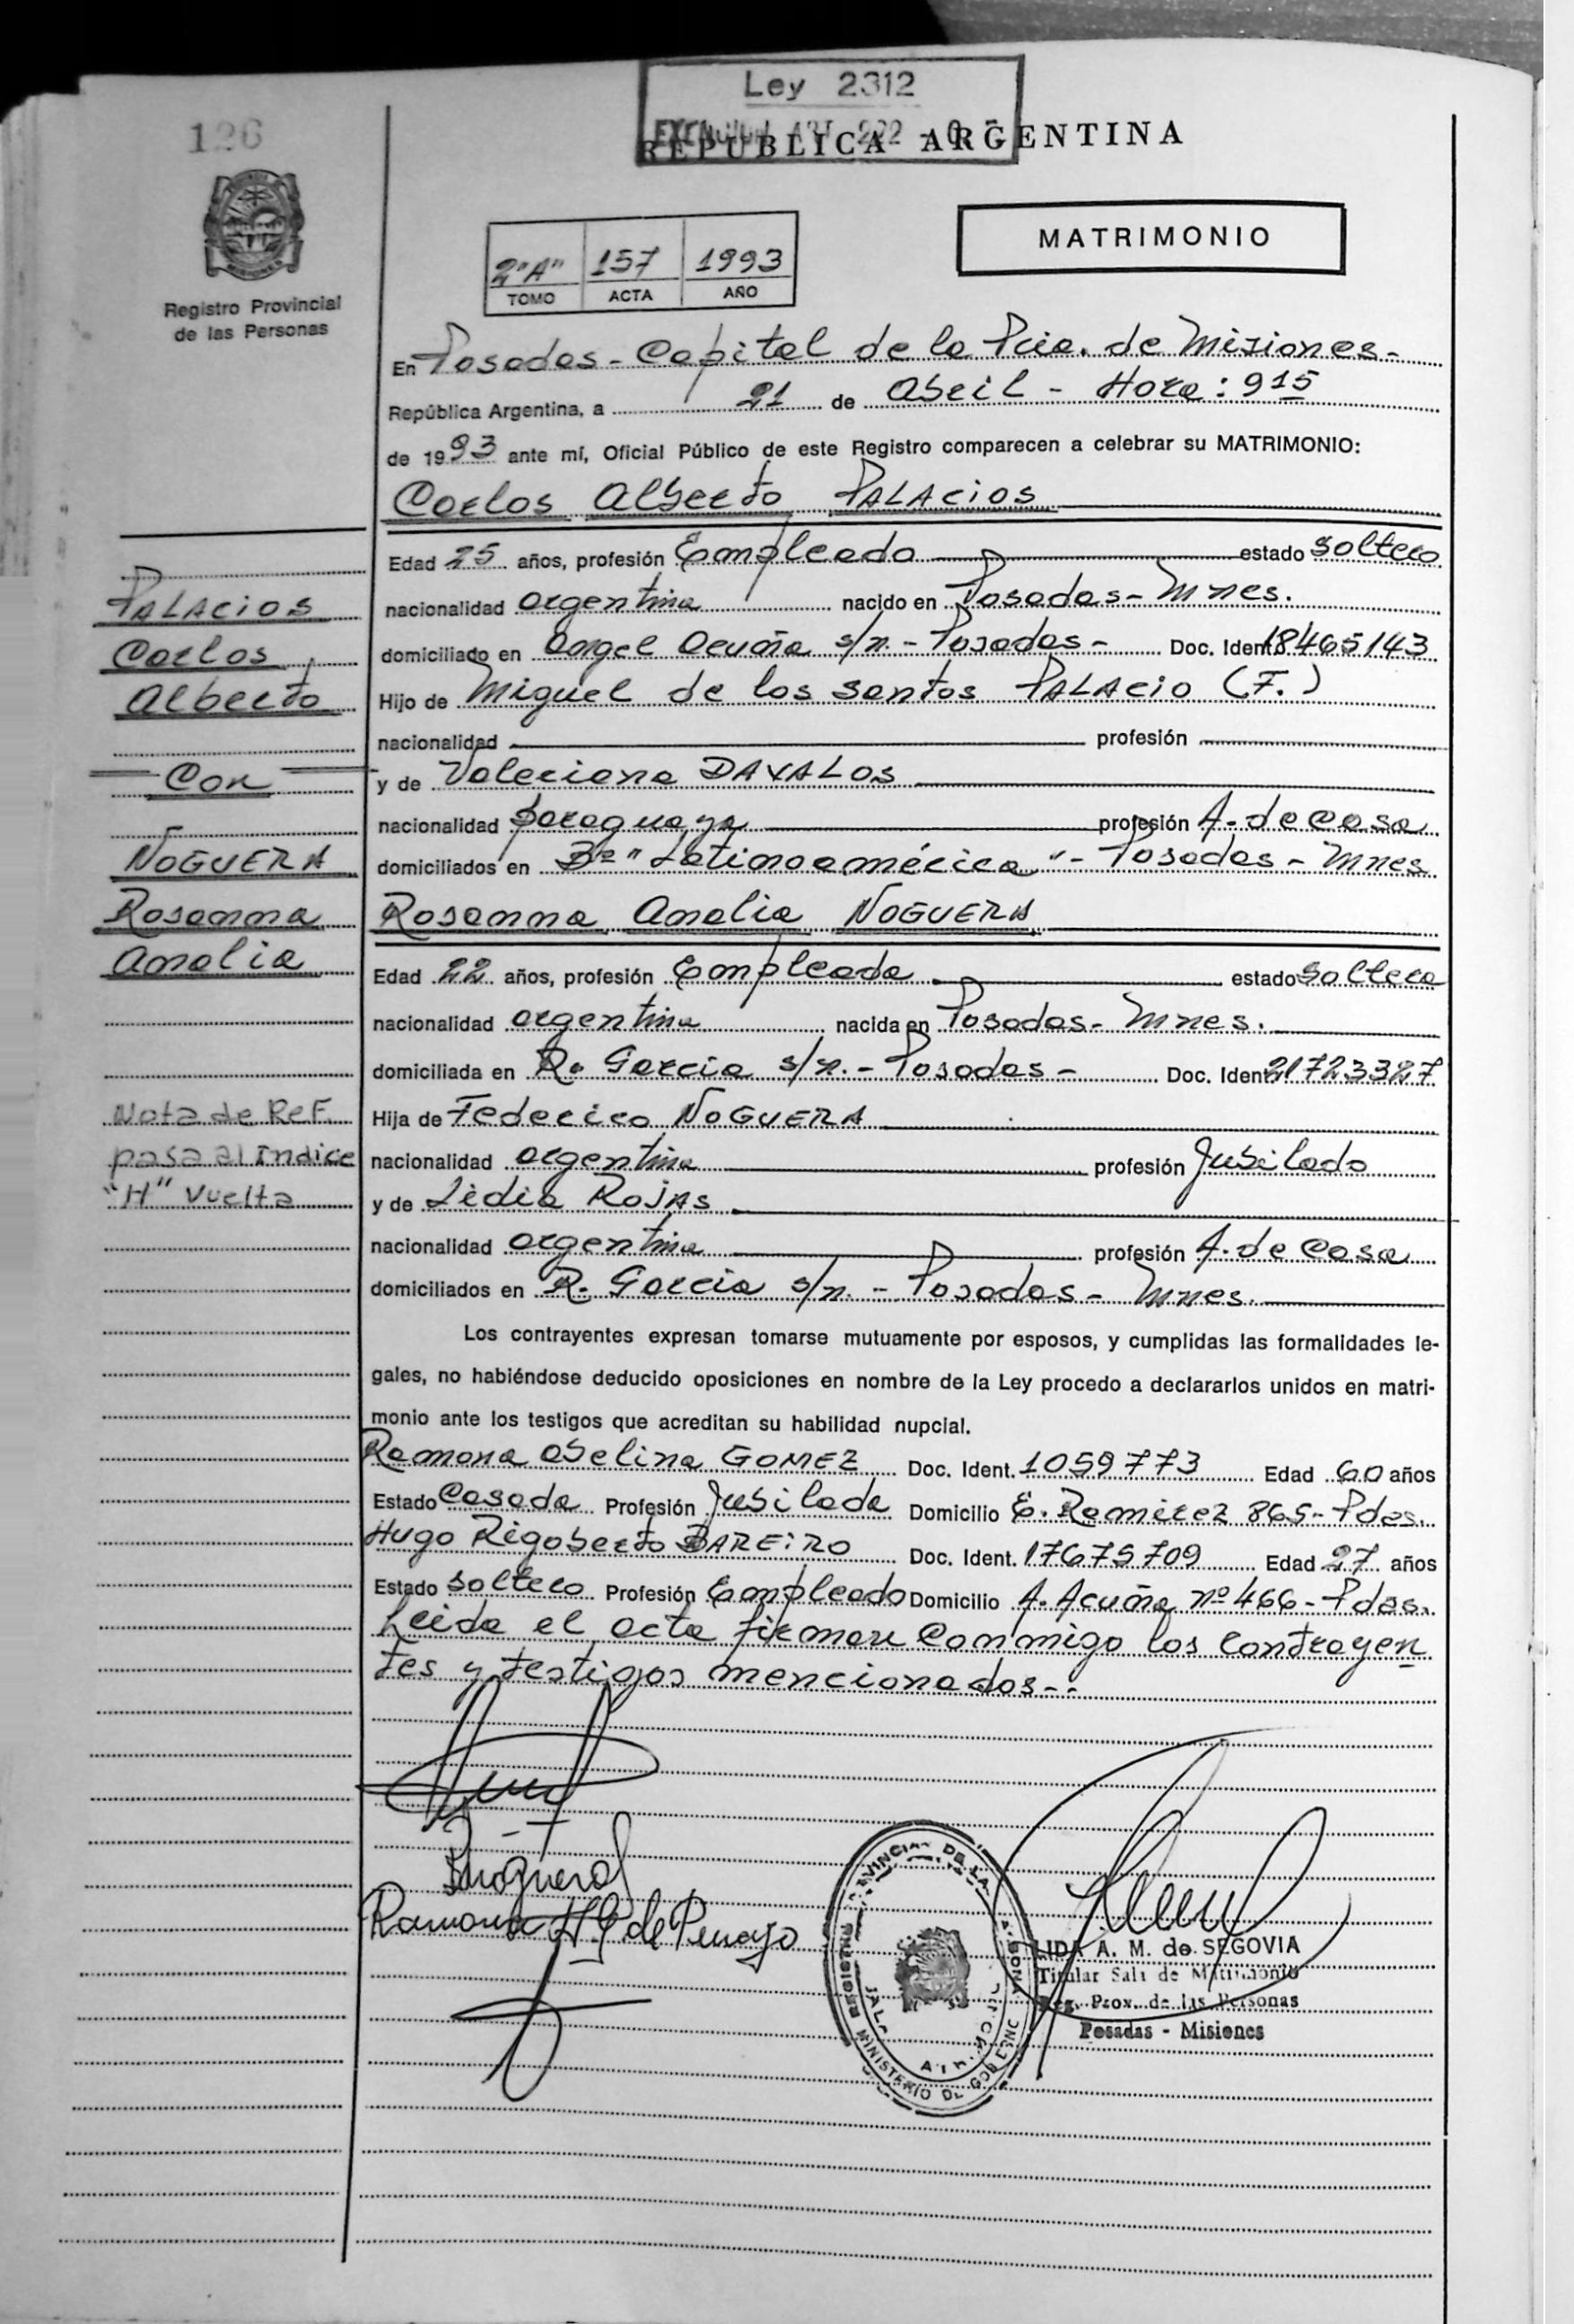 Ley 2312
126
REPUBLICA ARGENTINA
MATRIMONIO
2"A" 157 1993
TOMO ACTA AÑO
Registro Provincial
de las Personas
En Posadas - Capital de la Pcia. de Misiones -
República Argentina, a 21 de Abril - Hora: 915
de 1993 ante mí, Oficial Público de este Registro comparecen a celebrar su MATRIMONIO:
Carlos Alberto PALACIOS
Edad 25 años, profesión Empleado estado Soltero
nacionalidad argentina nacido en Posadas - Mnes.
domiciliado en Angel Acuña s/n. - Posadas - Doc. Ident 18465143
Hijo de Miguel de los Santos PALACIO (F.)
nacionalidad profesión
y de Valeriana DAVALOS
nacionalidad paraguaya profesión A. de Casa
domiciliados en Bº "Latinoamérica" - Posadas - Mnes
Rosanna Analia NOGUERA
Edad 22 años, profesión Empleada estado Soltera
nacionalidad argentina nacida en Posadas - Mnes.
domiciliada en R. García s/n. - Posadas - Doc. Ident. 21723327
Hija de Federico NOGUERA
nacionalidad argentina profesión Jubilado
y de Lidia ROJAS
nacionalidad argentina profesión A. de Casa
domiciliados en R. García s/n. - Posadas - Mnes.
Los contrayentes expresan tomarse mutuamente por esposos, y cumplidas las formalidades le-
gales, no habiéndose deducido oposiciones en nombre de la Ley procedo a declararlos unidos en matri-
monio ante los testigos que acreditan su habilidad nupcial.
Ramona Abelina GOMEZ Doc. Ident. 1059773 Edad 60 años
Estado Casada Profesión Jubilada Domicilio E. Ramirez 865 - Pdas.
Hugo Rigoberto BAREIRO Doc. Ident. 17675709 Edad 27 años
Estado Soltero Profesión Empleado Domicilio A. Acuña nº 466 - Pdas.
Leida el acta firman conmigo los contrayen
tes y testigos mencionados - -
PALACIOS
Carlos
Alberto
Con
NOGUERA
Rosanna
Analia
Nota de Ref.
pasa al Indice
"H" Vuelta
Ramona A G de Penayo
LIDA A. M. de SEGOVIA
Titular Sala de Matrimonio
Reg. Prov. de las Personas
Posadas - Misiones
MINISTERIO DE